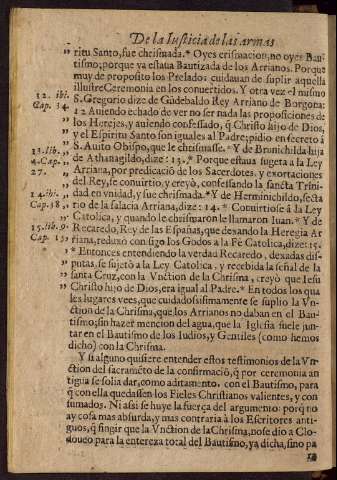 De la Iusticia de las armas
„ ritu Santo, fue chrismada.* Oyes crismacion, no oyes Bau-
„ tismo; porque ya estaua Bautizada de los Arrianos. Porque
muy de proposito los Prelados cuidauan de suplir aquella
illustre Ceremonia en los conuertidos. Y otra vez el mismo
12. ibi. S. Gregorio dize de Gūdebaldo Rey Arriano de Borgoña:
Cap. 34. 12 Auiendo echado de ver no ser nada las proposiciones de
„ los Herejes, y auiendo confessado, q̄ Christo hijo de Dios,
„ y el Espiritu Santo son iguales al Padre; pidio en secreto á
„ S. Auito Obispo, que le chrismasse.* Y de Brunichilda hija
13. lib. de Athanagildo, dize: 13.* Porque estaua sugeta a la Ley
4. Cap. „ Arriana, por predicación de los Sacerdotes, y exortaciones
27. „ del Rey, se conuirtio, y creyò, confessando la sancta Trini-
14. ibi. „ dad en vnidad, y fue chrismada.* Y de Herminichildo, secta
Cap. 38. rio de la falacia Arriana, dize: 14.* Conuirtiose á la Ley
„ Catolica, y quando le chrismaron le llamaron Iuan.* Y de
15. lib. 9. Recaredo, Rey de las Españas, que dexando la Heregia Ar
Cap. 15. riana, reduxo consigo los Godos a la Fè Catolica, dize: 15.
„ * Entonces entendiendo la verdad Recaredo, dexadas dis-
„ putas, se sujetò a la Ley Catolica, y recebida la señal de la
„ santa Cruz, con la Vnction de la Chrisma, creyò que Iesu
„ Christo hijo de Dios, era igual al Padre.* En todos los qua
les lugares vees, que cuidadosissimamente se suplio la Vn-
ction de la Chrisma, que los Arrianos no daban en el Bau-
tismo; sin hazer mencion del agua, que la Iglesia suele jun-
tar en el Bautismo de los Iudios, y Gentiles (como hemos
dicho) con la Chrisma.
Y si alguno quisiere entender estos testimonios de la Vn-
ction del sacramēto de la confirmaciō, q̄ por ceremonia an
tigua se solia dar, como aditamento con el Bautismo, para
q̄ con ella quedassen los Fieles Christianos valientes, y con
sumados. Ni assi se huye la fuerça del argumento: porq̄ no
ay cosa mas absurda, y mas contraria a los Escritores anti-
guos, q̄ fingir que la Vnction de la Chrisma, no se dio a Clo-
doueo para la entereza total del Bautismo, ya dicha, sino pa